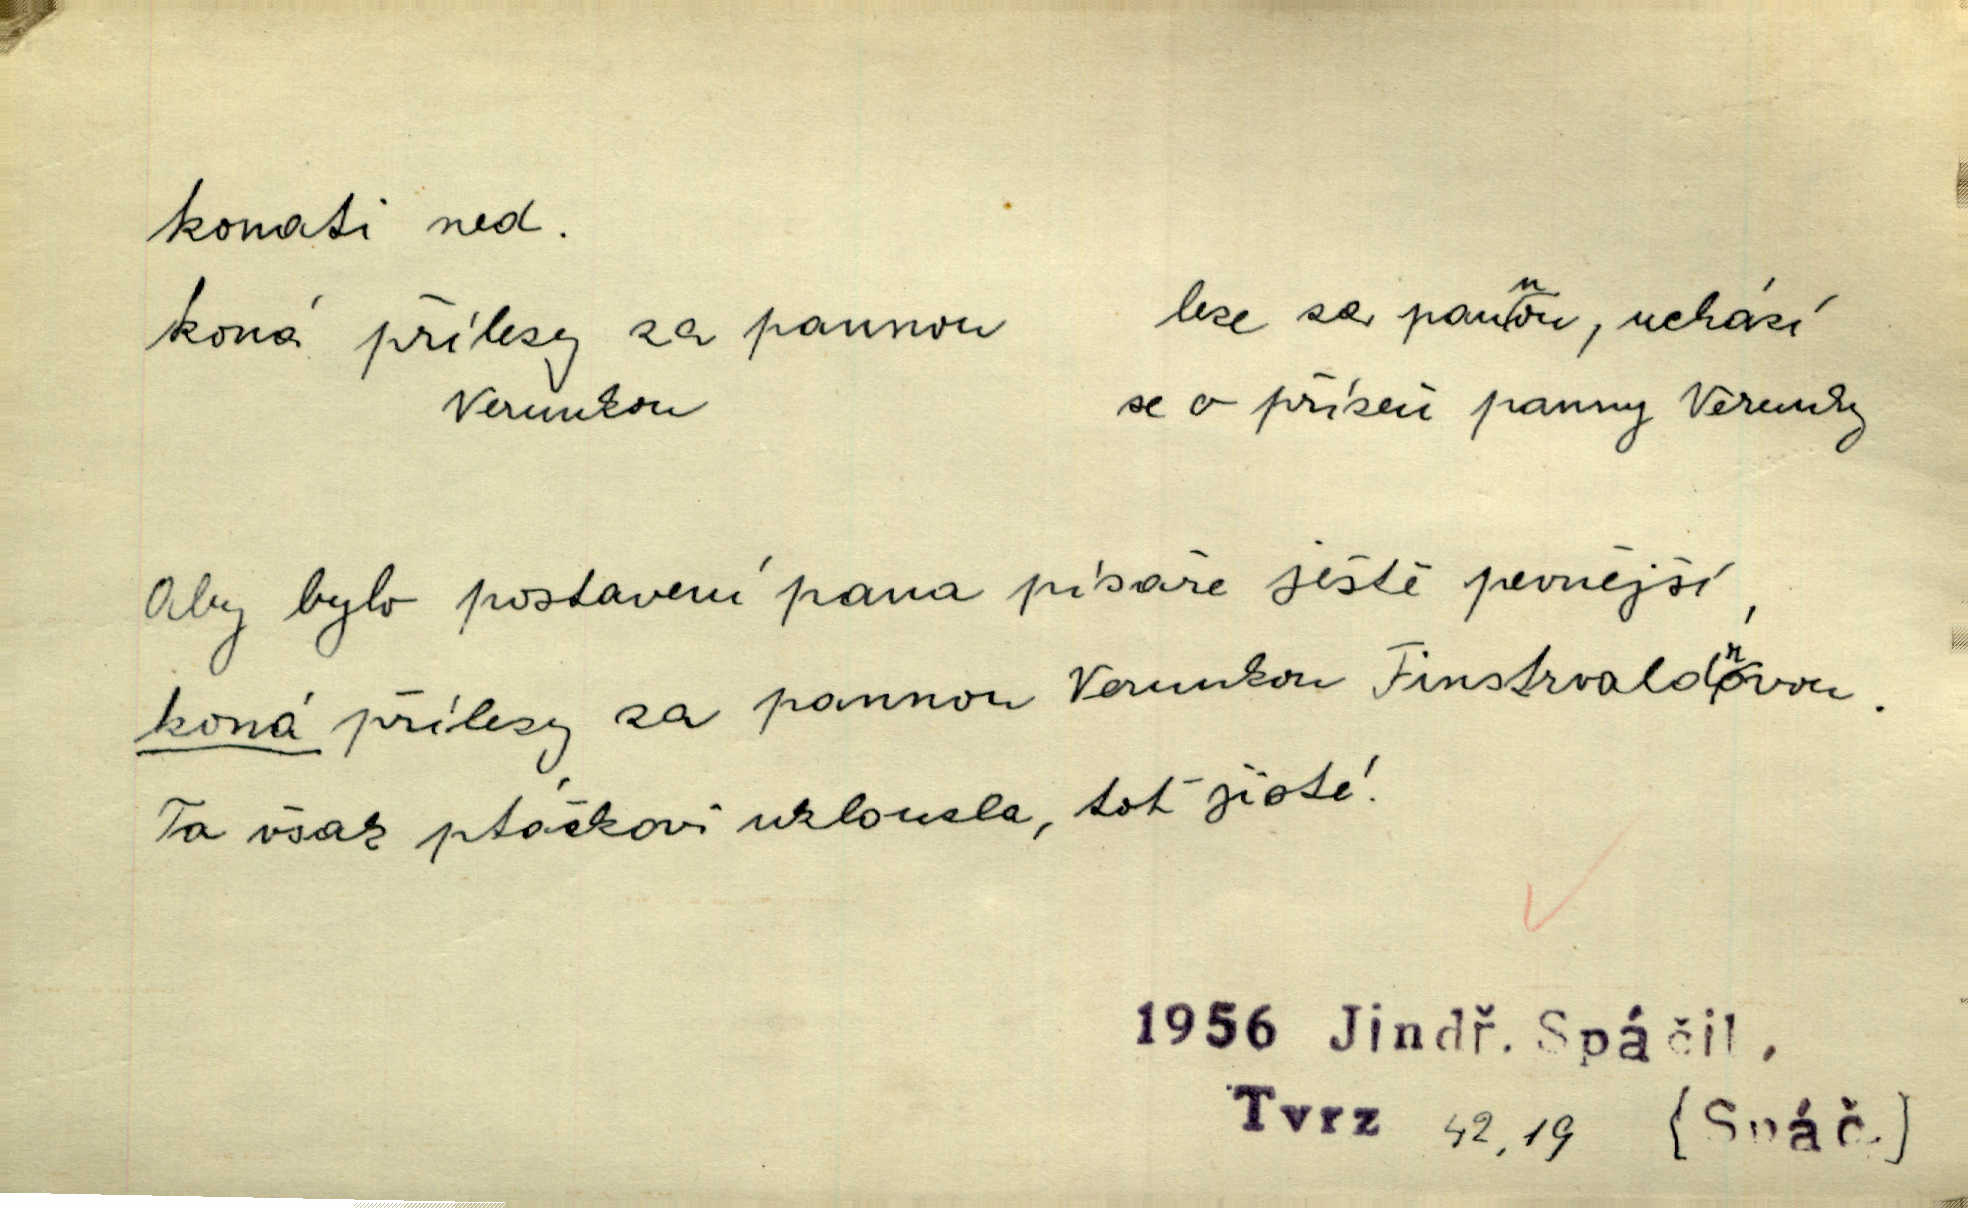 konati ned.
koná přílezy za pannou
Verunkou
leze za pannou, uchází
se o přízeň panny Verunky
Aby bylo postavení pana písaře ještě pevnější,
koná přílezy za pannou Verunkou Finstrvaldrovou.
Ta však ptáčkovi uklouzla, toť jisté!
1956 Jindř. Spáčil,
Tvrz 42,19 [Spáč.]